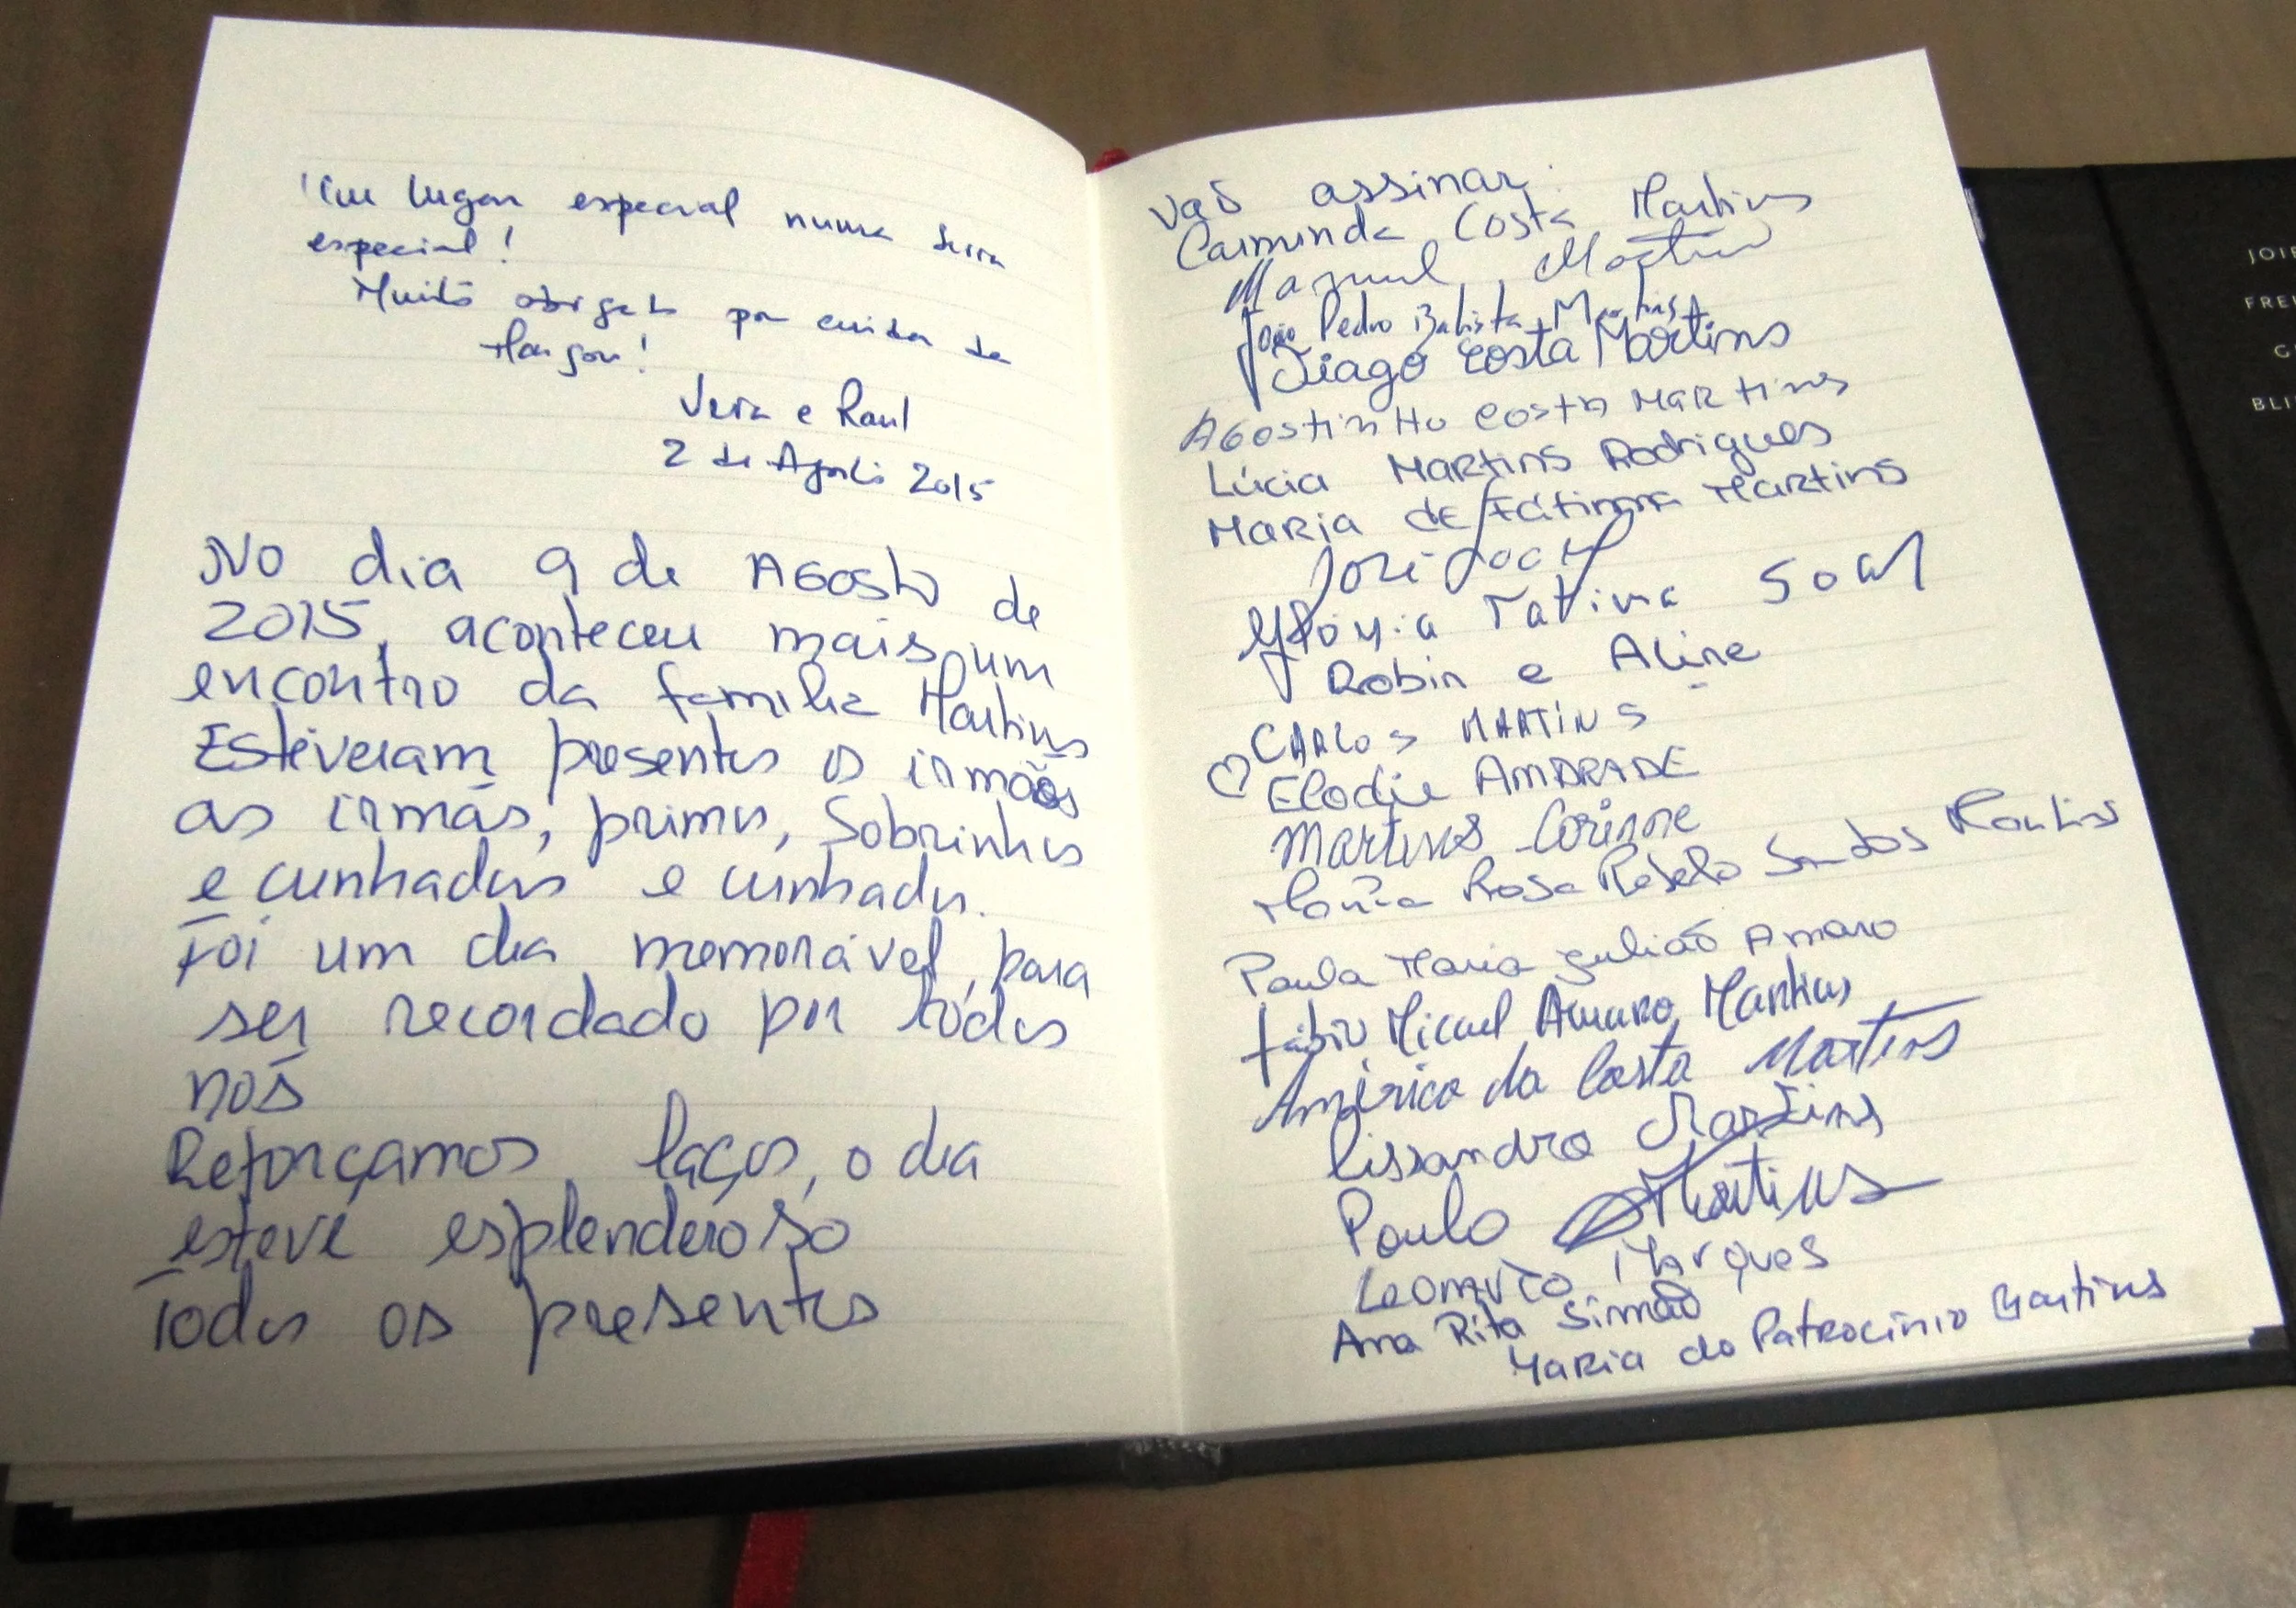 Um lugar especial numa serra
especial!
Muito obrigado por cuidar da
Vera e Raul
2 de Agosto 2015
No dia 9 de Agosto de
2015, aconteceu mais um
encontro da familia Martins
Estiveram presentes os irmãos
as irmãs, primos, Sobrinhos
e cunhadas e cunhados.
Foi um dia memorável, para
ser recordado por todos
nós
Reforçamos laços, o dia
esteve esplenderoso
Todos os presentes
vaõ assinar.
Carminda Costa Martins
Manuel Martins
João Pedro Batista Martins
Tiago Costa Martins
Agostinho Costa Martins
Lúcia Martins Rodrigues
Maria de Fátima Martins
José
Tatiana
Robin e Aline
CARLOS MARTINS
Elodie ANDRADE
Martins Corinne
Maria Rosa Rebelo Santos Martins
Paula Maria Julião Amaro
Fábio Micael Amaro Martins
Américo da Costa Martins
Lissandro Martins
Paulo Martins
Marques
Ana Rita Simão
Maria do Patrocínio Martins
JOIE
FRE
BLI